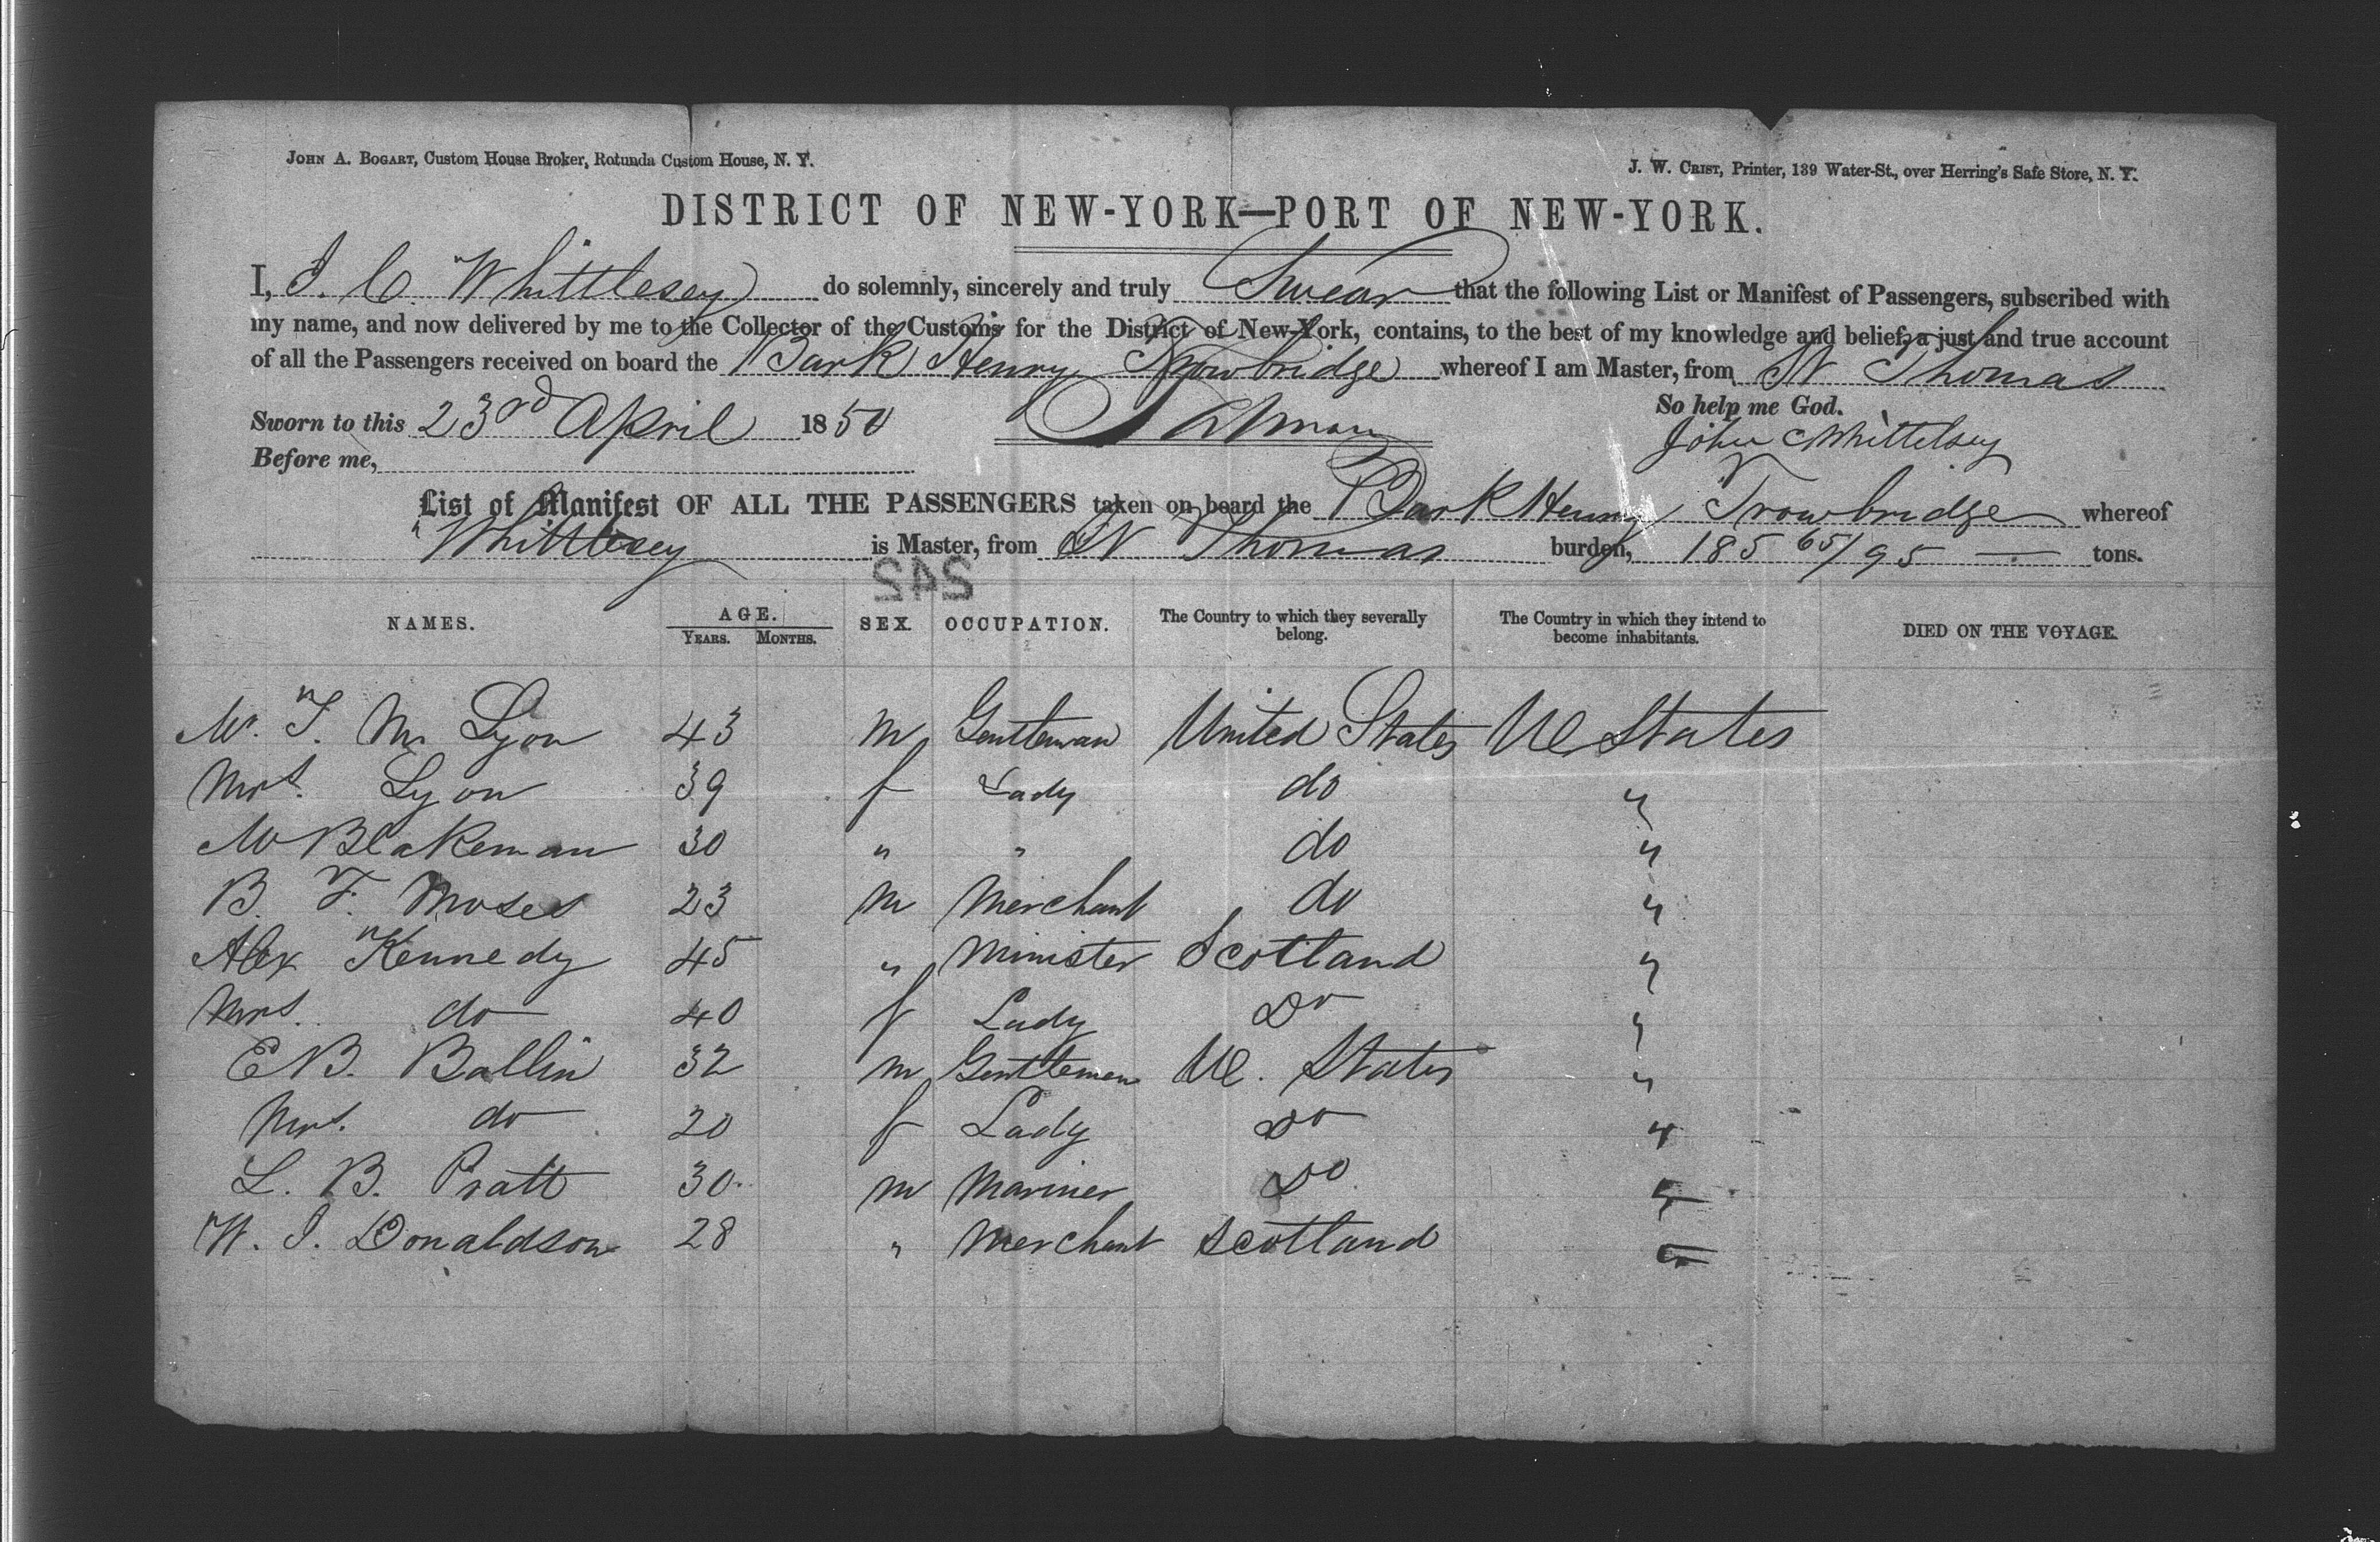 JOHN A. BOGART, Custom House Broker, Rotunda Custom House, N. Y.
J. W. CRIST, Printer, 139 Water-St., over Herring's Safe Store, N. Y.
DISTRICT OF NEW-YORK—PORT OF NEW-YORK.
I, J. C. Whittlesey do solemnly, sincerely and truly Swear that the following List or Manifest of Passengers, subscribed with
my name, and now delivered by me to the Collector of the Customs for the District of New-York, contains, to the best of my knowledge and belief, a just and true account
of all the Passengers received on board the Bark Henry Trowbridge whereof I am Master, from St Thomas
So help me God.
Sworn to this 23rd April 1850
John C Whittelsey
Before me,
List of Manifest OF ALL THE PASSENGERS taken on board the Bark Henry Trowbridge whereof
Whittlesey is Master, from St Thomas burden, 185 65/95 — tons.
242
NAMES. AGE. YEARS. MONTHS. SEX. OCCUPATION. The Country to which they severally belong. The Country in which they intend to become inhabitants. DIED ON THE VOYAGE.
Mr. T. M Lyon 43 m Gentleman United States U States
Mrs. Lyon 39 f Lady do "
M Blakeman 30 " " do "
B. F. Moses 23 m Merchant do "
Alex Kennedy 45 " Minister Scotland "
Mrs. do 40 f Lady Do "
E B. Ballin 32 m Gentlemen U. States "
Mrs. do 20 f Lady Do "
L. B. Pratt 30 m Mariner Do "
W. J. Donaldson 28 " Merchant Scotland "